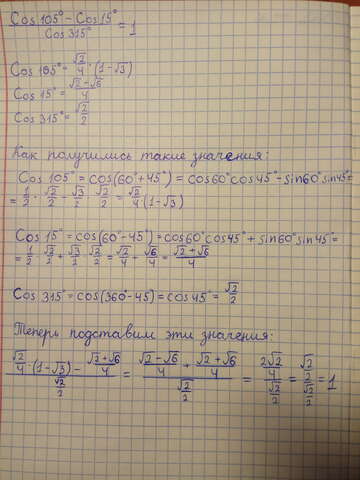 (Cos 105° - Cos 15°) / Cos 315° = 1
Cos 105° = √2/4 · (1-√3)
Cos 15° = (√2-√6)/4
Cos 315° = √2/2
Как получились такие значения:
Cos 105° = cos(60°+45°) = cos60°cos45° - sin60°sin45° =
= 1/2 · √2/2 - √3/2 · √2/2 = √2/4 · (1-√3)
Cos 15° = cos(60°-45°) = cos60°cos45° + sin60°sin45° =
= 1/2 · √2/2 + √3/2 · √2/2 = √2/4 + √6/4 = (√2+√6)/4
Cos 315° = cos(360°-45) = cos45° = √2/2
Теперь подставим эти значения:
(√2/4 · (1-√3) - (√2+√6)/4) / (√2/2) = ((√2-√6)/4 + (√2+√6)/4) / (√2/2) = (2√2/4) / (√2/2) = (√2/2) / (√2/2) = 1